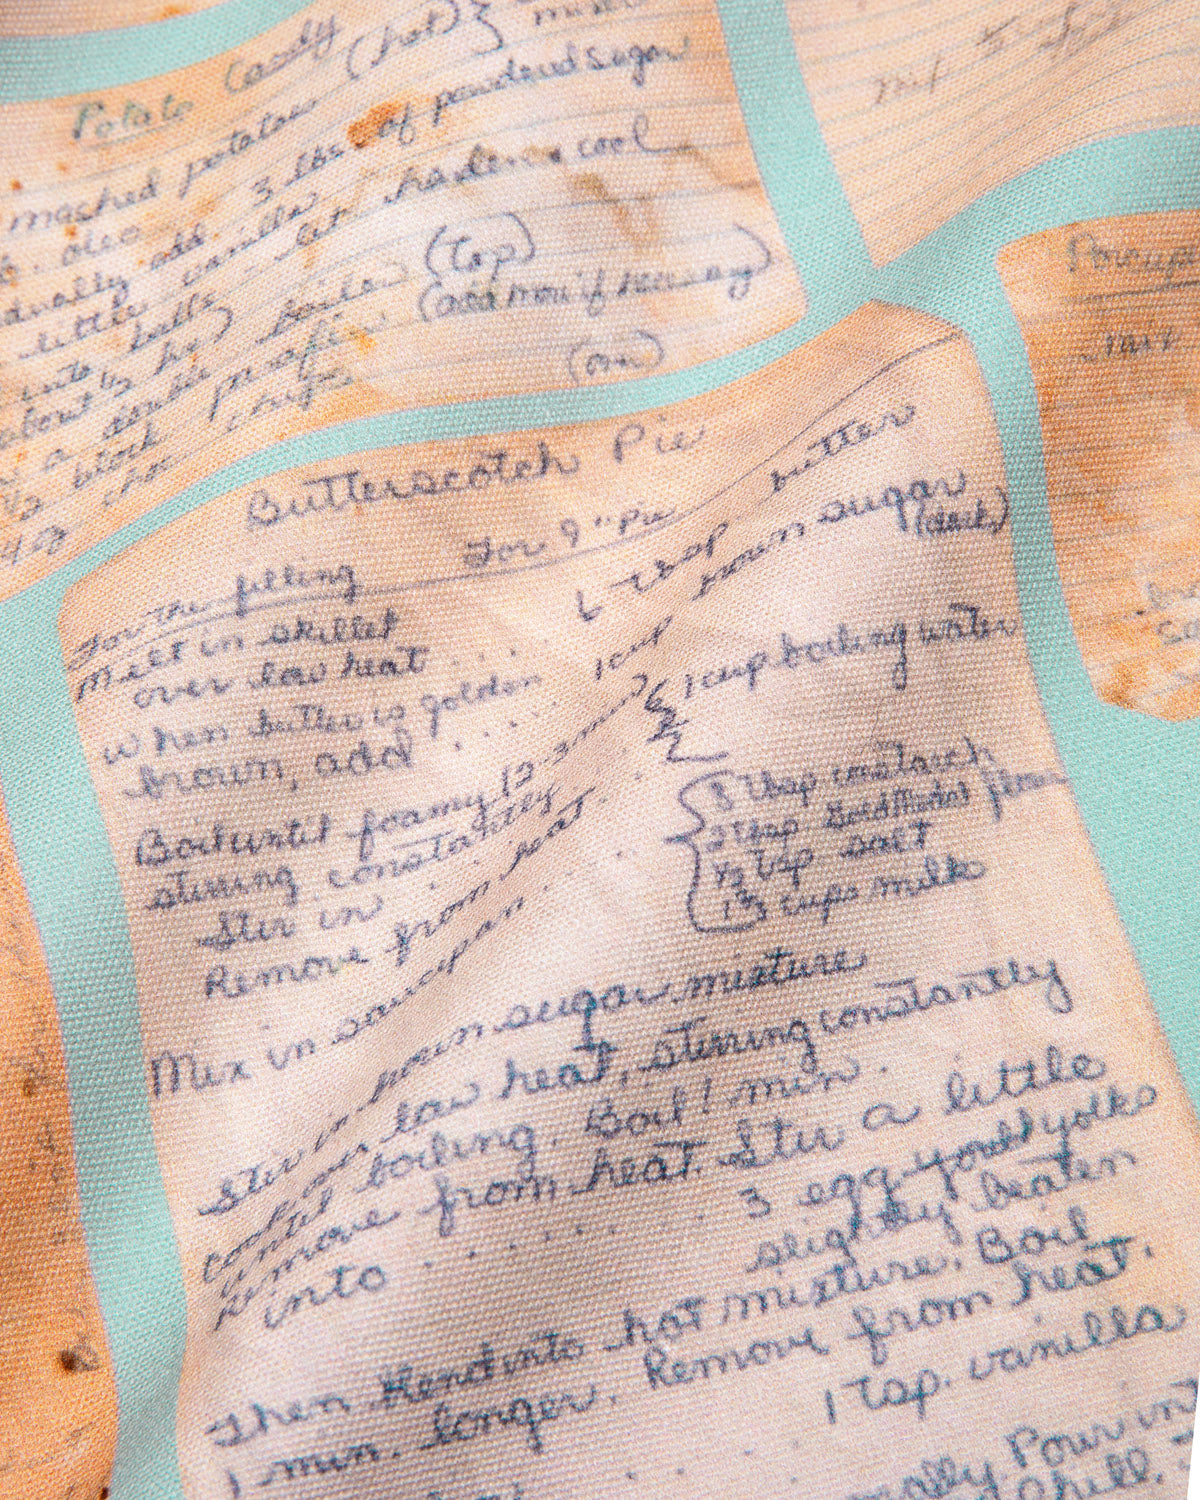 Potato Candy
mashed potatoes (hot) }
also 3 lbs. of powdered sugar
gradually add
little vanilla - let harden, cool
into balls
about ½ hr)
in a double boiler (top)
½ block paraffin (add more if necessary)
choc chips (over)
4 oz
mix
mix
Butterscotch Pie
For 9" Pie
For the filling
Melt in skillet
over low heat . . . 6 Tbsp butter
when butter is golden
brown, add . . . . 1 cup brown sugar
(dark)
Boil until foamy (2-3 min)
stirring constantly
Stir in . . . 1 cup boiling water
Remove from heat
Mix in saucepan . . . . { 3 Tbsp cornstarch
2 Tbsp Gold Medal flour
½ tsp salt
1⅔ cups milk
Stir in brown sugar mixture
Cook over low heat, stirring constantly
until boiling. Boil 1 min.
Remove from heat. Stir a little
into . . . . . . . 3 egg yolks
slightly beaten
Then blend into hot mixture. Boil
1 min. longer. Remove from heat.
. . . . 1 tsp. vanilla
Pour into
Chill.